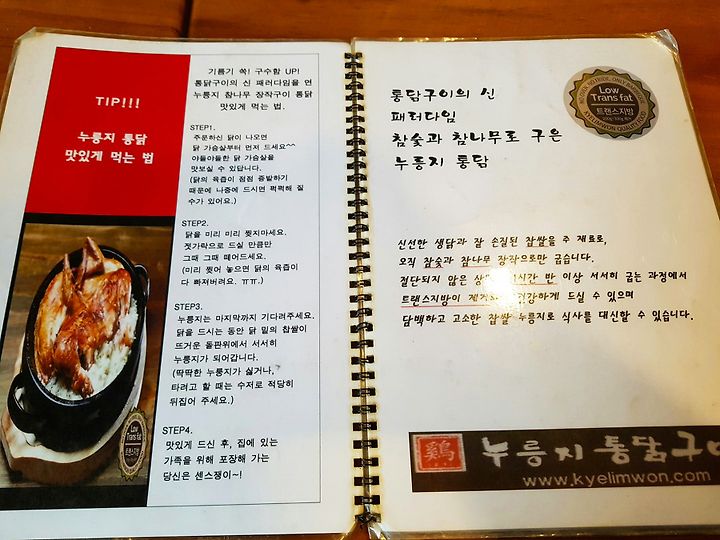 TIP!!!
누룽지 통닭
맛있게 먹는 법
기름기 쏙! 구수함 UP!
통닭구이의 신 패러다임을 연
누룽지 참나무 장작구이 통닭
맛있게 먹는 법.
STEP1.
주문하신 닭이 나오면
닭 가슴살부터 먼저 드세요^^
야들야들한 닭 가슴살을
맛보실 수 있답니다.
(닭의 육즙이 점점 증발하기
때문에 나중에 드시면 퍽퍽해 질
수가 있어요.)
STEP2.
닭을 미리 미리 찢지마세요.
젓가락으로 드실 만큼만
그때 그때 떼어드세요.
(미리 찢어 놓으면 닭의 육즙이
다 빠져버려요. ㅠㅠ.)
STEP3.
누룽지는 마지막까지 기다려주세요.
닭을 드시는 동안 닭 밑의 찹쌀이
뜨거운 돌판위에서 서서히
누룽지가 되어갑니다.
(딱딱한 누룽지가 싫거나,
타려고 할 때는 수저로 적당히
뒤집어 주세요.)
STEP4.
맛있게 드신 후, 집에 있는
가족을 위해 포장해 가는
당신은 센스쟁이~!
Low
Trans fat
트랜스지방
통닭구이의 신
패러다임
참숯과 참나무로 구은
누룽지 통닭
Low
Trans fat
트랜스지방
신선한 생닭과 잘 손질된 찹쌀을 주 재료로,
오직 참숯과 참나무 장작으로만 굽습니다.
절단되지 않은 시간 반 이상 서서히 굽는 과정에서
트랜스지방이 강하게 드실 수 있으며
담백하고 고소한 찹쌀 누룽지로 식사를 대신할 수 있습니다.
鷄 누룽지 통닭구이
www.kyelimwon.com